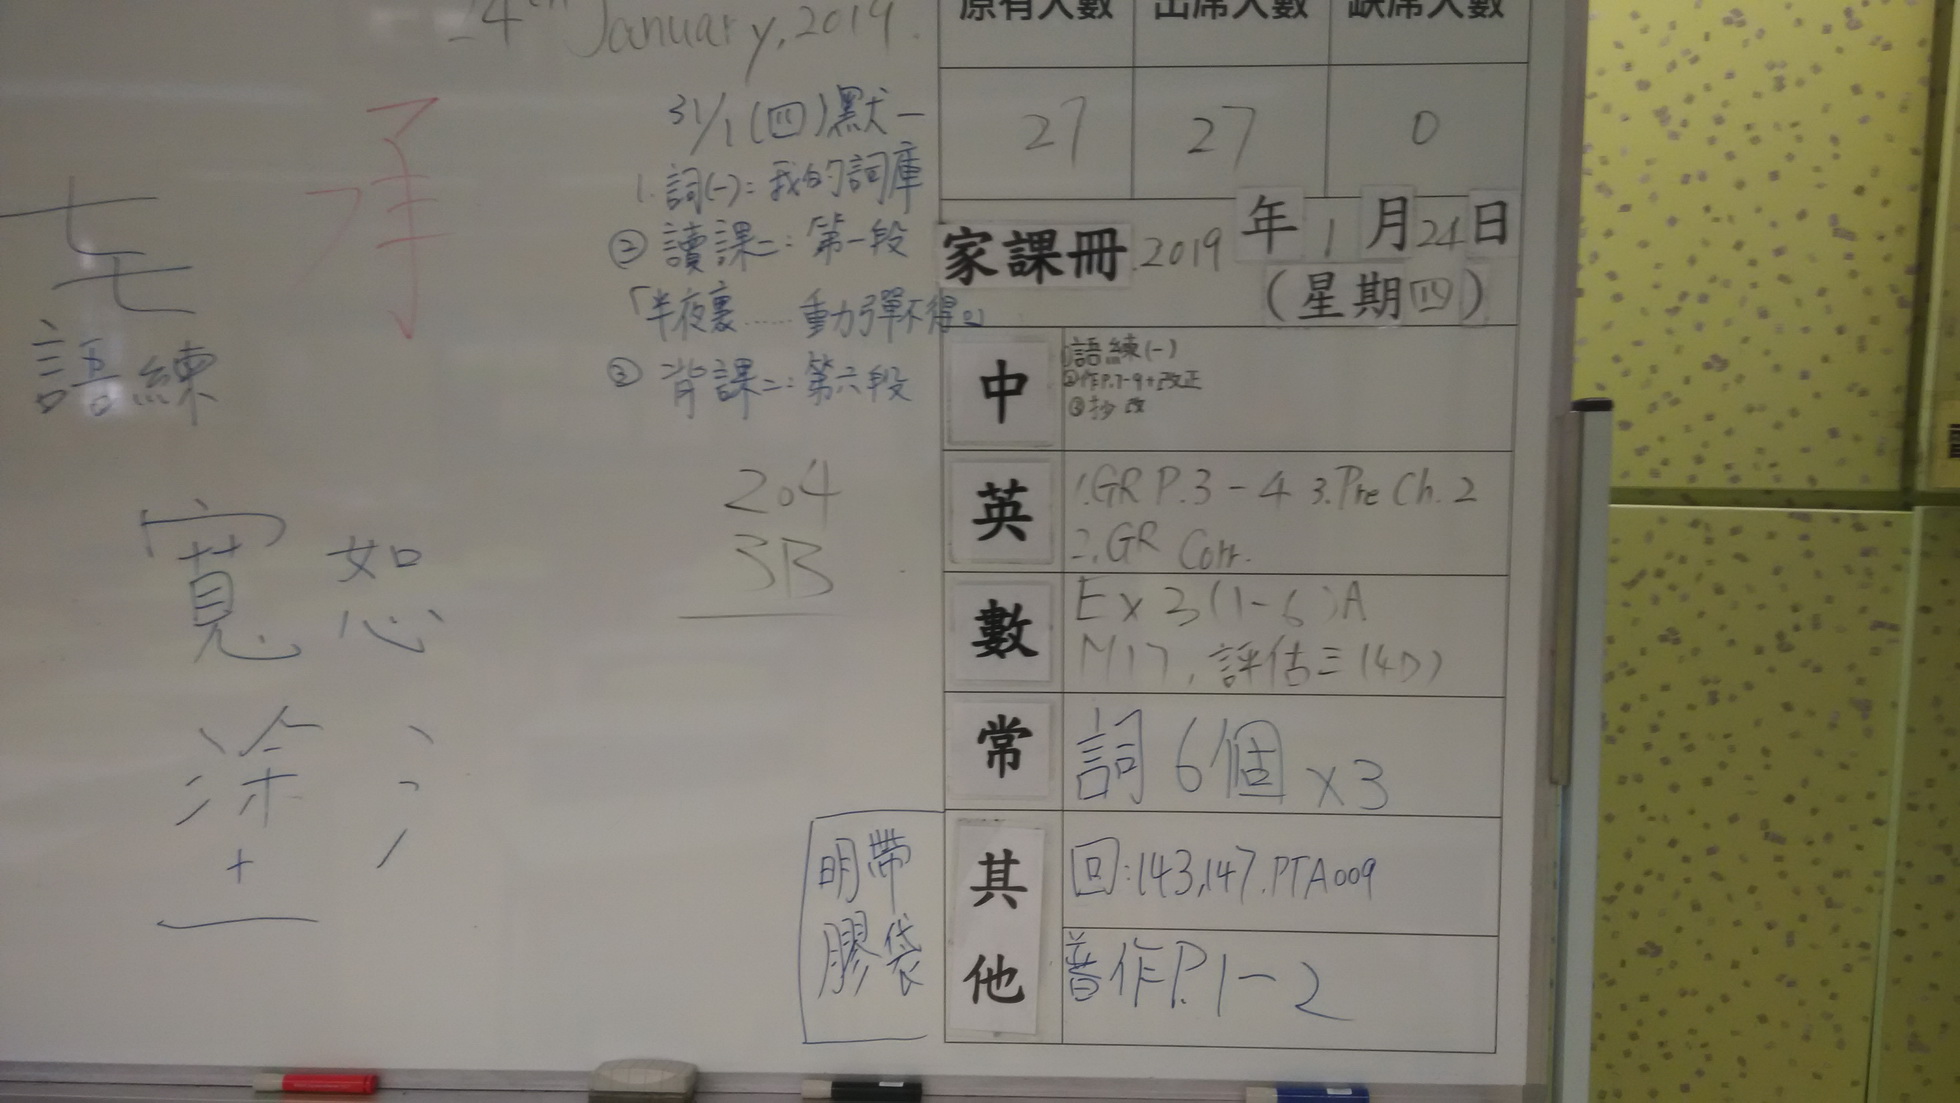 24th January, 2019.
七
七
語練
寬 恕
塗
31/1(四)默一
1. 詞(一): 我的詞庫
② 讀課二: 第一段
「半夜裏……動彈不得。」
③ 背課二: 第六段
204
3B
明帶
膠袋
原有人數 出席人數 缺席人數
27 27 0
家課冊 2019年1月24日
(星期四)
中
語練(一)
②作P.7-9+改正
③抄改
英
1.GR P.3-4 3.Pre Ch.2
2.GR Corr.
數
Ex 3(1-6)A
M17, 評估三(4D)
常
詞 6個 x3
其他
回:143,147.PTA009
普作P.1-2